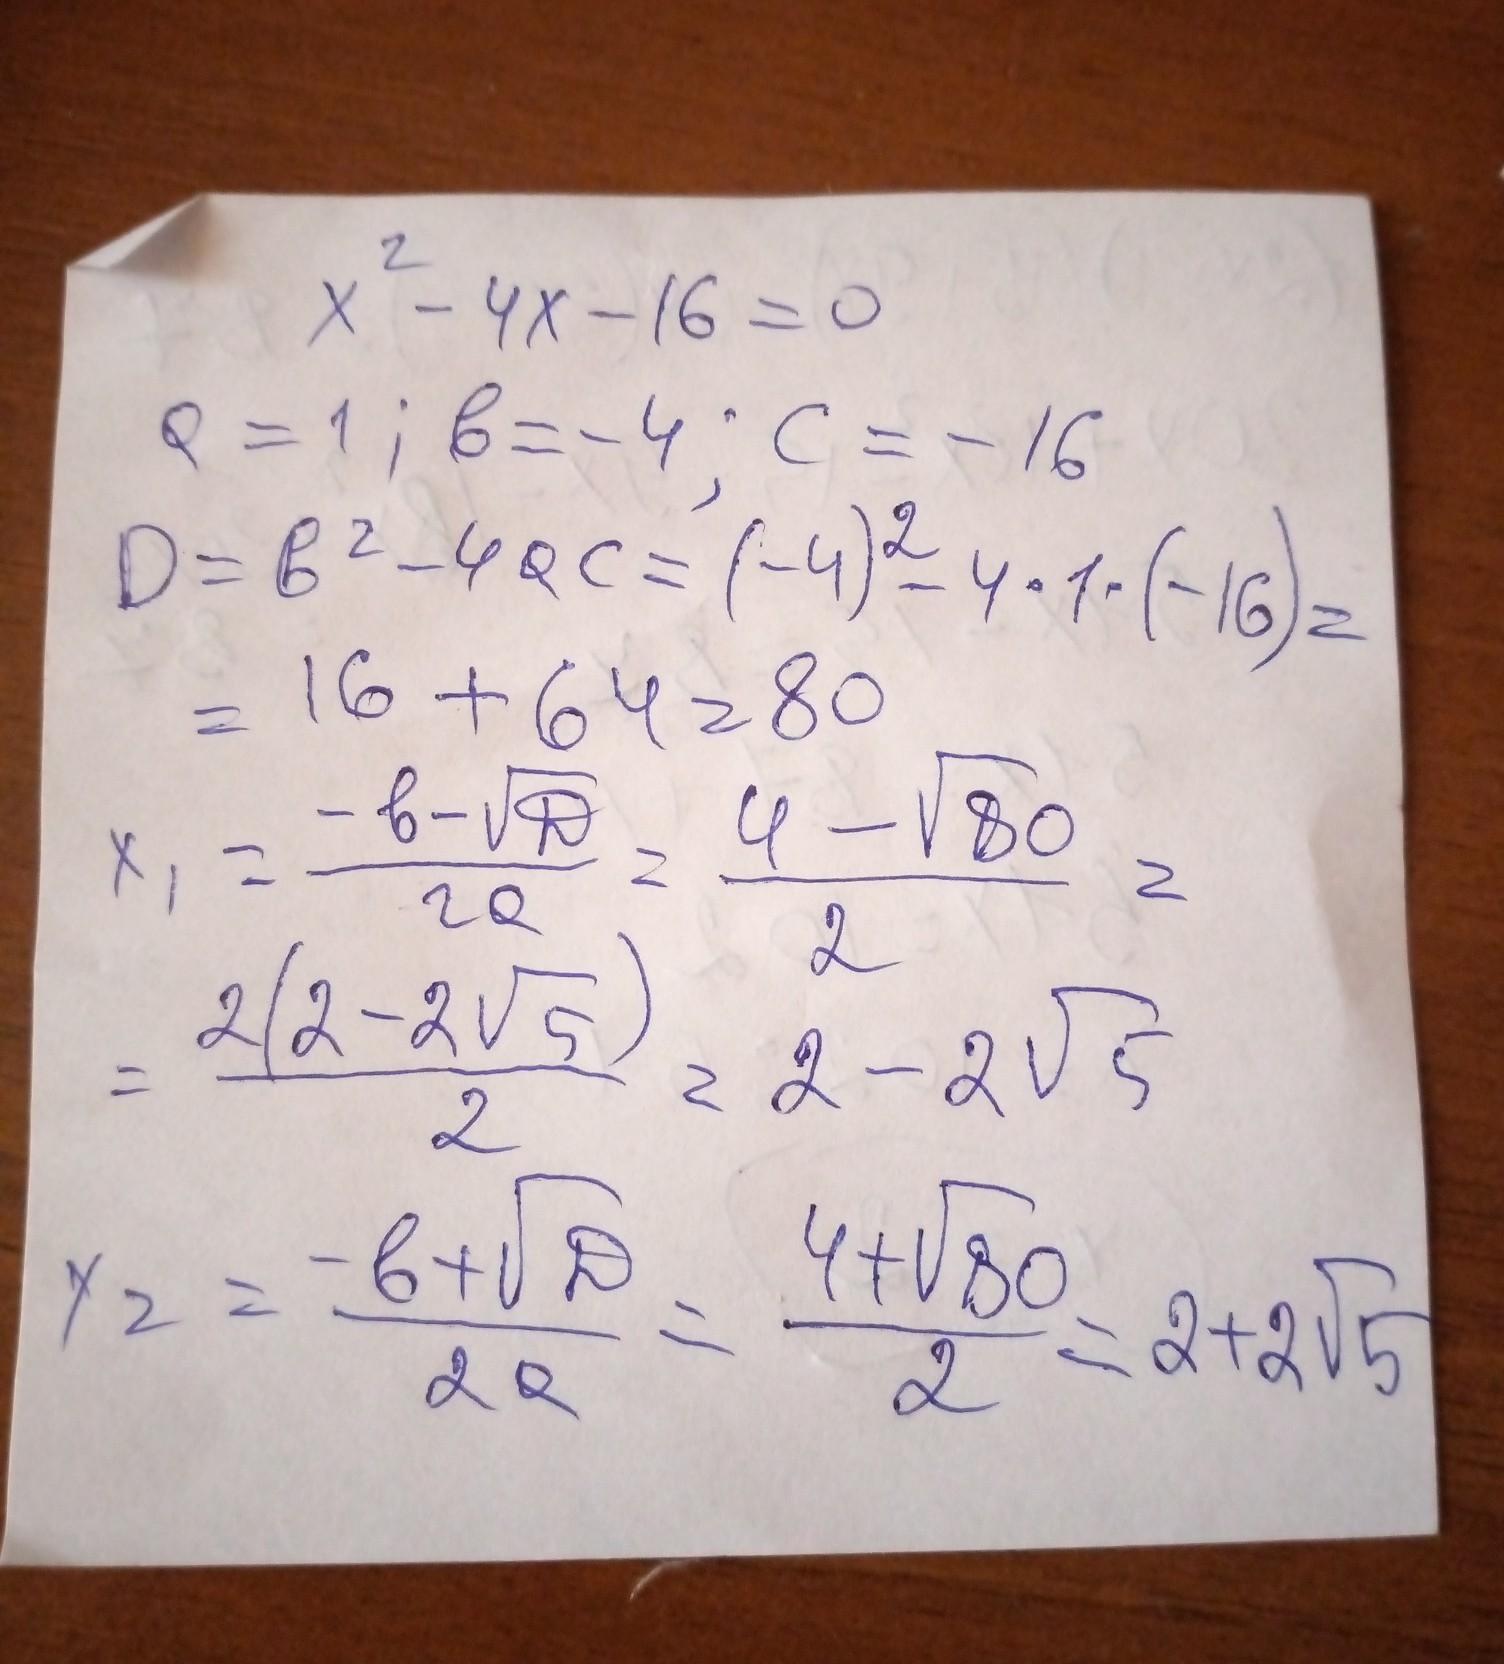 x² - 4x - 16 = 0
a = 1; b = -4; c = -16
D = b² - 4ac = (-4)² - 4·1·(-16) =
= 16 + 64 = 80
x₁ = (-b - √D)/(2a) = (4 - √80)/2 =
= 2(2 - 2√5)/2 = 2 - 2√5
x₂ = (-b + √D)/(2a) = (4 + √80)/2 = 2 + 2√5